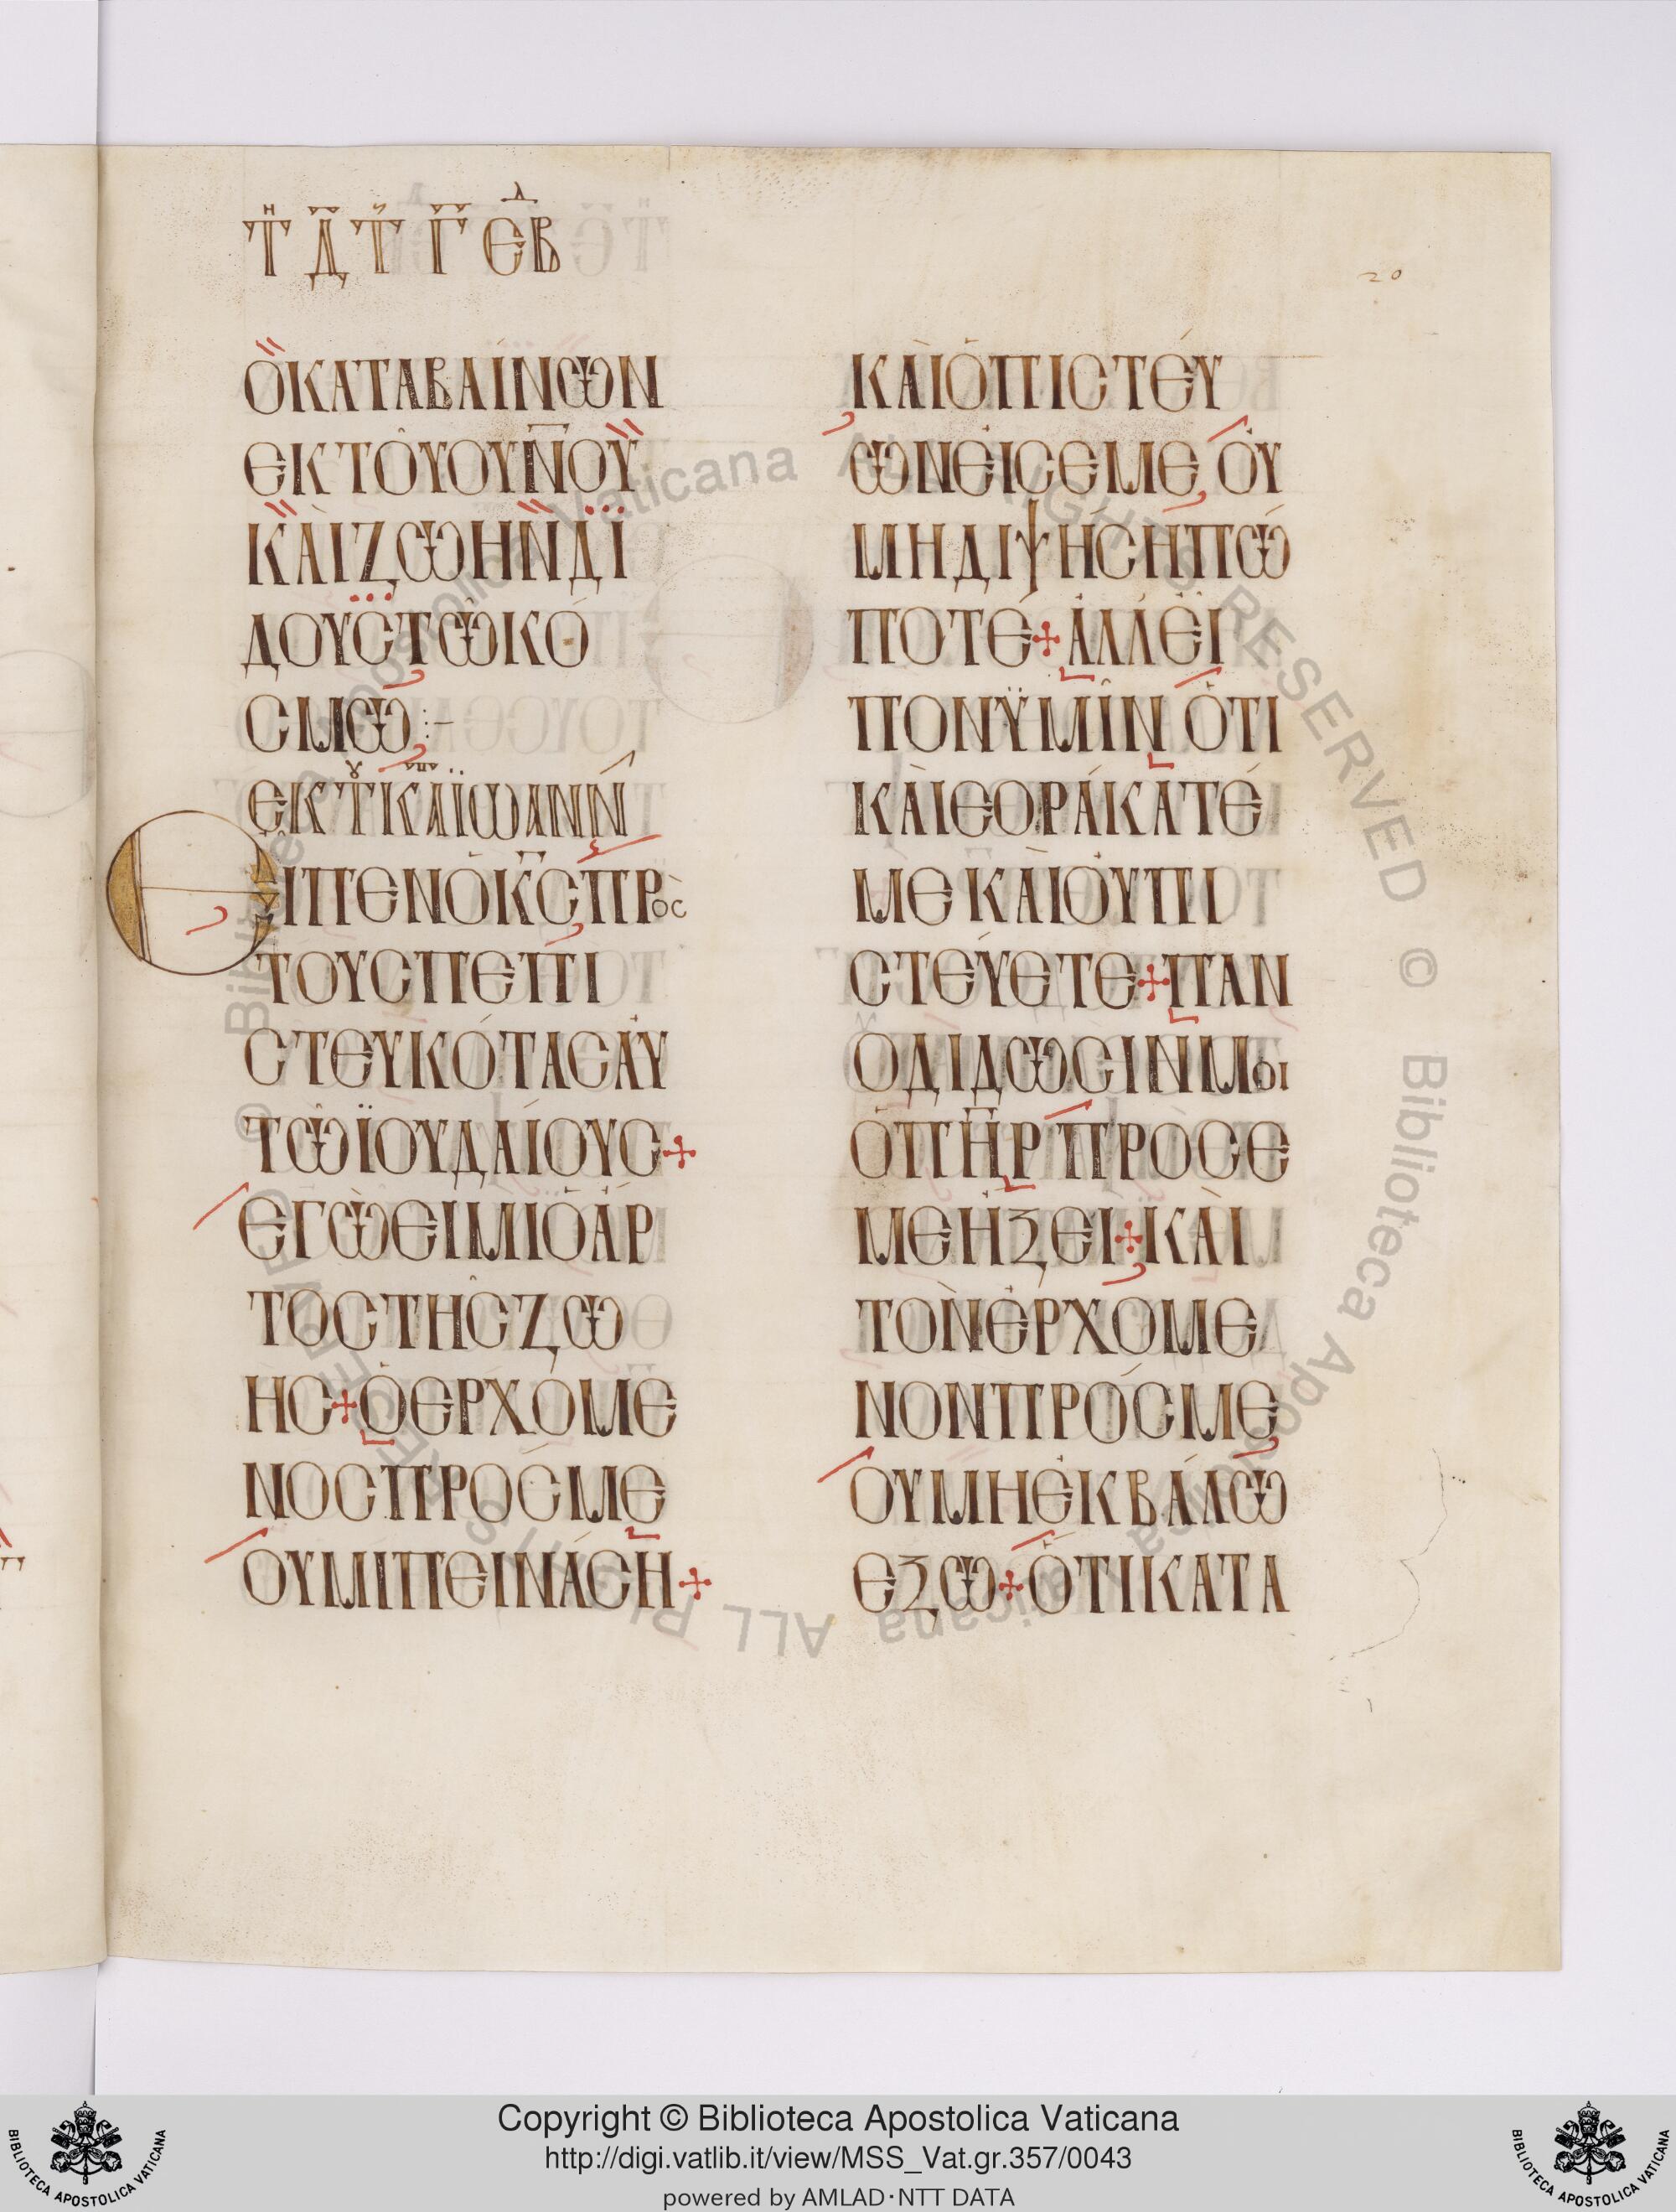 Τῌ Δ ΤΗ Γ ΕΒΔ
20
ὉΚΑΤΑΒΑΊΝΩΝ
ΕΚΤΟΥΟΥΝΟΥ
ΚΑῚΖΩΗΝΔΙ
ΔΟΥΣΤΩΚΌ
ΣΜΩ:–
ΕΚΤΚΑΪΩΑΝΝ
ΕΙΠΕΝὉΚΣΠΡΟΣ
ΤΟΥΣΠΕΠΙ
ΣΤΕΥΚΌΤΑΣΑΥ
ΤΩΪΟΥΔΑΊΟΥΣ+
ΕΓΩΕΙΜΙὉΆΡ
ΤΟΣΤΗΣΖΩ
ΗΣ+ὉΕΡΧΌΜΕ
ΝΟΣΠΡΌΣΜΕ
ΟΥΜΙΠΕΙΝΆΣΗ+
ΚΑῚὉΠΙΣΤΕΎ
ΩΝΕΙΣΕΜΕ, ΟΥ
ΜΗΔΙΨΉΣΗΠΩ
ΠΟΤΕ+ἈΛΛΕΙ
ΠΟΝΫΜΙΝὍΤΙ
ΚΑῚΕΟΡΆΚΑΤΕ
ΜΕΚΑῚΟΥΠΙ
ΣΤΕΎΕΤΕ+ΠΑΝ
ὉΔΊΔΩΣΙΝΜΟΙ
ὉΠΗΡΠΡΟΣΕ
ΜΕΗΞΕΙ+ΚΑῚ
ΤΟΝΕΡΧΟΜΕ
ΝΟΝΠΡΌΣΜΕ
ΟΥΜΗΕΚΒΆΛΩ
ΕΞΩ+ὍΤΙΚΑΤΑ
© Biblioteca Apostolica Vaticana ALL RIGHTS RESERVED © Biblioteca Apostolica Vaticana ALL RIGHTS RESERVED
Copyright © Biblioteca Apostolica Vaticana
http://digi.vatlib.it/view/MSS_Vat.gr.357/0043
powered by AMLAD·NTT DATA
BIBLIOTECA APOSTOLICA VATICANA
BIBLIOTECA APOSTOLICA VATICANA